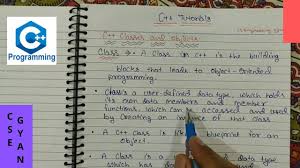 C++ Tutorials
C++ Classes and Objects
Class → A Class in C++ is the building
blocks that leads to Object-Oriented
programming.
Class is a user defined data type, which holds
its own data members and member
functions, which can be accessed and used
by creating an instance of that class
A C++ class is blueprint for an
object.
A Class is a data type
which has
C++
Programming
CSE
GYAN